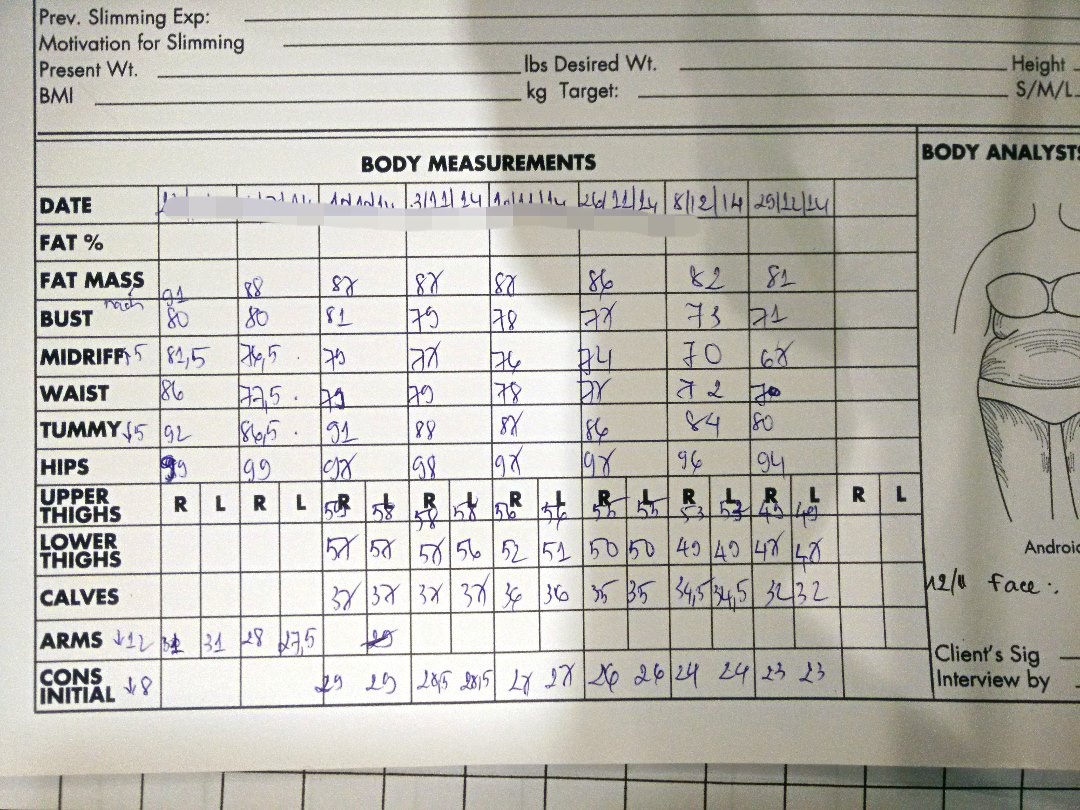 Prev. Slimming Exp:
Motivation for Slimming
Present Wt. lbs Desired Wt. Height
BMI kg Target: S/M/L
BODY MEASUREMENTS BODY ANALYSTS
DATE 3/11/14 26/11/14 8/12/14 29/12/14
FAT %
FAT MASS 91 88 87 87 87 86 82 81
BUST 80 80 81 79 78 77 73 71
MIDRIFF 81,5 76,5 79 77 76 74 70 67
WAIST 86 77,5 79 79 78 77 72 70
TUMMY ↓5 92 86,5 91 88 87 86 84 80
HIPS 99 99 97 98 97 97 96 94
UPPER THIGHS R L R L R L R L R L R L R L R L R L
59 58 58 58 56 56 55 55 53 53 49 49
LOWER THIGHS 57 57 57 56 52 51 50 50 49 49 47 47
CALVES 37 37 37 37 36 36 35 35 34,5 34,5 32 32
ARMS ↓12 31 28 27,5
CONS INITIAL ↓8 29 29 28,5 28,5 27 27 26 26 24 24 23 23
Android
12/11 face :
Client's Sig
Interview by